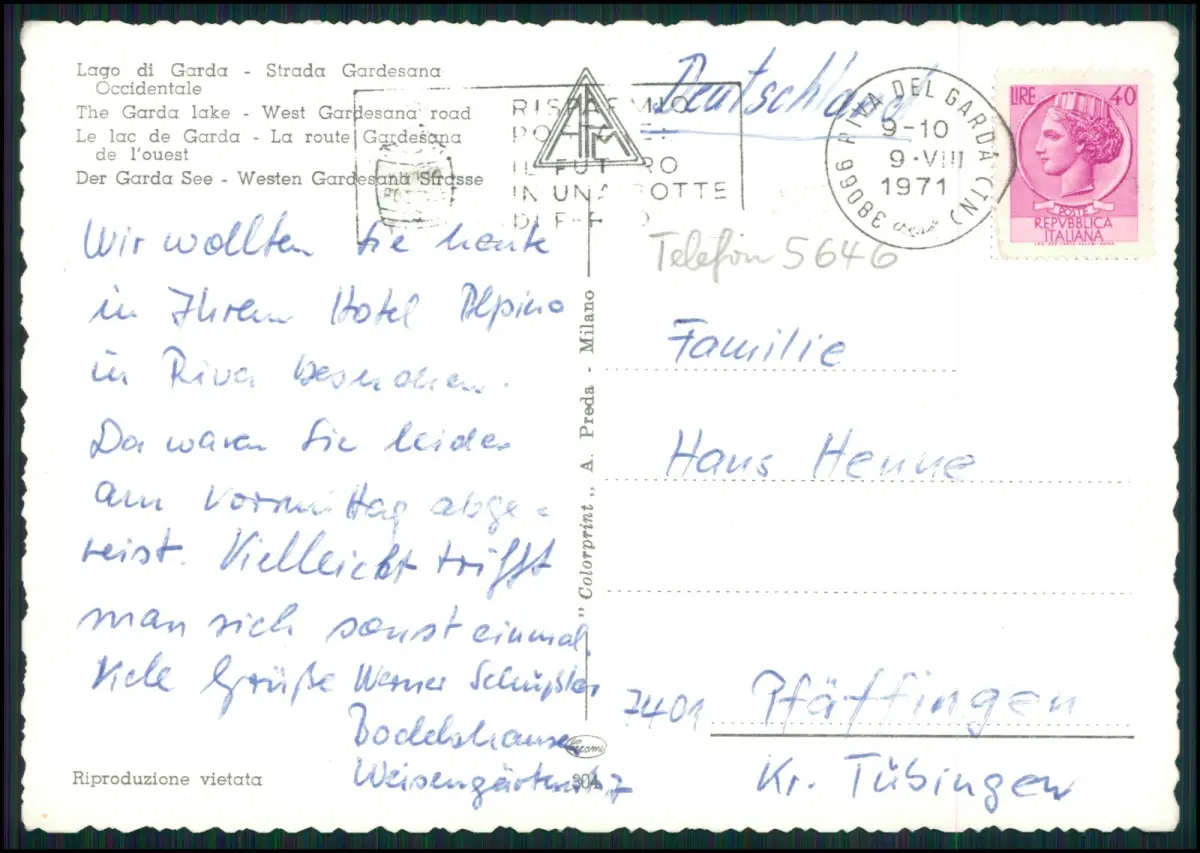 Lago di Garda - Strada Gardesana
Occidentale
The Garda lake - West Gardesana road
Le lac de Garda - La route Gardesana
de l'ouest
Der Garda See - Westen Gardesana Strasse
Wir wollten Sie heute
in Ihrem Hotel Alpino
in Riva besuchen.
Da waren Sie leider
am Vormittag abge-
reist. Vielleicht trifft
man sich sonst einmal.
Viele Grüße Werner Schüßler
Bodelshausen
Weisengärtenst 7
Riproduzione vietata
304
"Colorprint" A. Preda - Milano
RISPARMIO
IL FUTURO
IN UNA BOTTE
DI FERRO
Deutschland
38066 RIVA DEL GARDA (TN)
9-10
9-VIII
1971
LIRE 40
POSTE
REPVBBLICA
ITALIANA
Telefon 5646
Familie
Hans Henne
7401 Pfäffingen
Kr. Tübingen